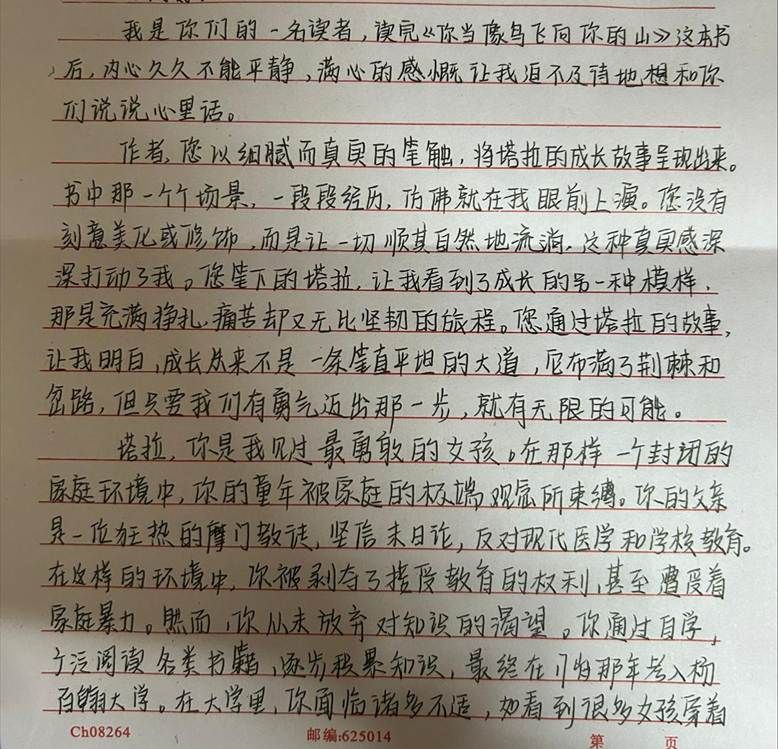 我是你们的一名读者，读完《你当像鸟飞向你的山》这本书
后，内心久久不能平静，满心的感慨让我迫不及待地想和你
们说说心里话。
作者，您以细腻而真实的笔触，将塔拉的成长故事呈现出来。
书中那一个个场景，一段段经历，仿佛就在我眼前上演。您没有
刻意美化或修饰，而是让一切顺其自然地流淌，这种真实感深
深打动了我。您笔下的塔拉，让我看到了成长的另一种模样，
那是充满挣扎，痛苦却又无比坚韧的旅程。您通过塔拉的故事，
让我明白，成长从来不是一条笔直平坦的大道，它布满了荆棘和
岔路，但只要我们有勇气迈出那一步，就有无限的可能。
塔拉，你是我见过最勇敢的女孩。在那样一个封闭的
家庭环境中，你的童年被家庭的极端观念所束缚。你的父亲
是一位狂热的摩门教徒，坚信末日论，反对现代医学和学校教育。
在这样的环境中，你被剥夺了接受教育的权利，甚至遭受着
家庭暴力。然而，你从未放弃对知识的渴望。你通过自学，
广泛阅读各类书籍，逐步积累知识，最终在17岁那年考入杨
百翰大学。在大学里，你面临诸多不适，如看到很多女孩穿着
Ch08264 邮编:625014 第 页